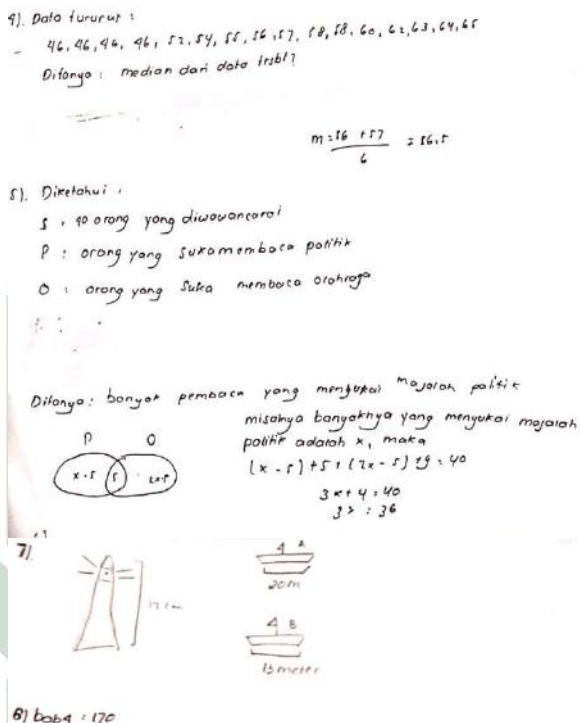 4). Data tururut :
46, 46, 46, 46, 52, 54, 55, 56, 57, 58, 58, 60, 62, 63, 64, 65
Ditanya : median dari data trsbt?
m = 56 + 57
6
= 56,5
5). Diketahui :
S : 40 orang yang diwawancarai
P : orang yang suka membaca politik
O : orang yang suka membaca olahraga
Ditanya : banyak pembaca yang menyukai majalah politik
misalnya banyaknya yang menyukai majalah
politik adalah x, maka
P O
x - 5 5 2x-5
(x - 5) + 5 + (2x - 5) + 9 = 40
3x + 4 = 40
3x = 36
7).
A
20m
B
15 meter
8) bab4 = 170